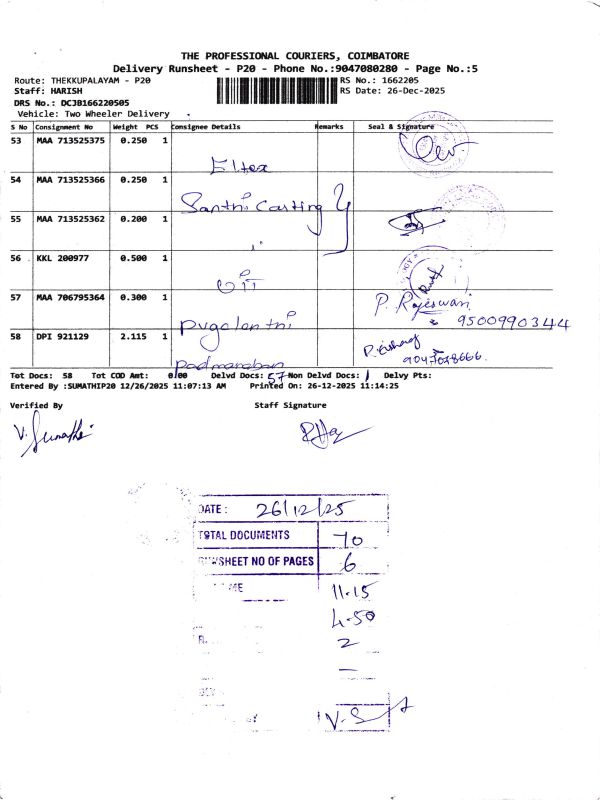 THE PROFESSIONAL COURIERS, COIMBATORE
Delivery Runsheet - P20 - Phone No.:9047080280 - Page No.:5
Route: THEKKUPALAYAM - P20
RS No.: 1662205
Staff: HARISH
RS Date: 26-Dec-2025
DRS No.: DCJB166220505
Vehicle: Two Wheeler Delivery
S No Consignment No Weight PCS Consignee Details Remarks Seal & Signature
53 MAA 713525375 0.250 1 Eltex
54 MAA 713525366 0.250 1 Santhi Casting
55 MAA 713525362 0.200 1 "
56 KKL 200977 0.500 1
57 MAA 706795364 0.300 1 Pugalenthi P. Rajeswari 9500990344
58 DPI 921129 2.115 1 Padmanaban
Tot Docs: 58 Tot COD Amt: 0.00 Delvd Docs: 57 Non Delvd Docs: 1 Delvy Pts:
Entered By :SUMATHIP20 12/26/2025 11:07:13 AM Printed On: 26-12-2025 11:14:25
Verified By Staff Signature
V. Sumathi
DATE : 26/12/25
TOTAL DOCUMENTS 70
SHEET NO OF PAGES 6
11.15
4.50
2
-
V.S